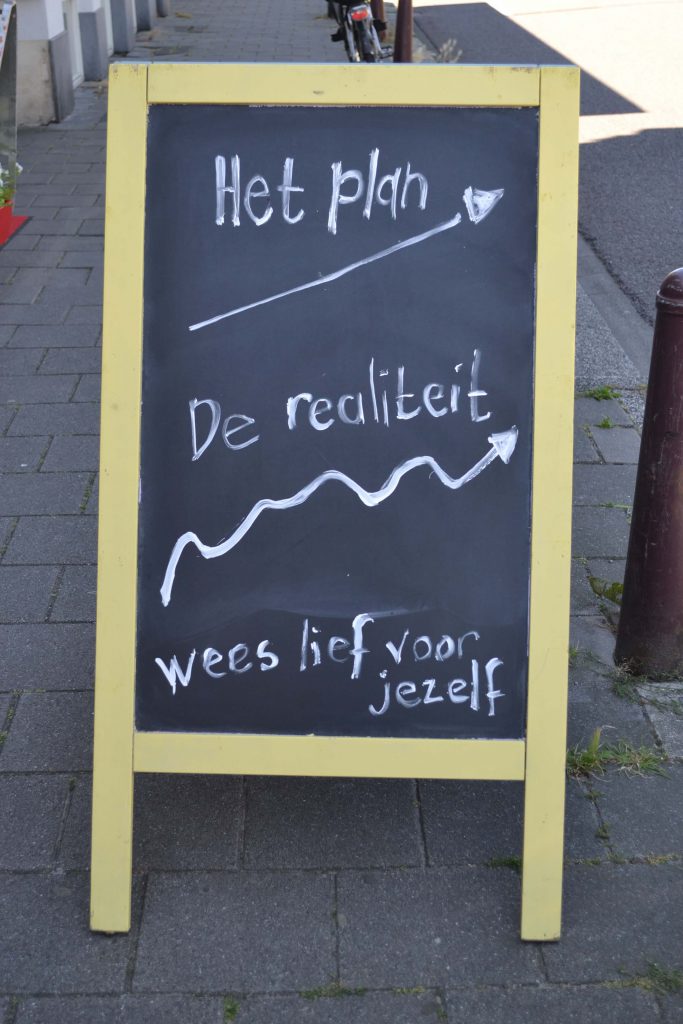 Het plan
De realiteit
wees lief voor
jezelf